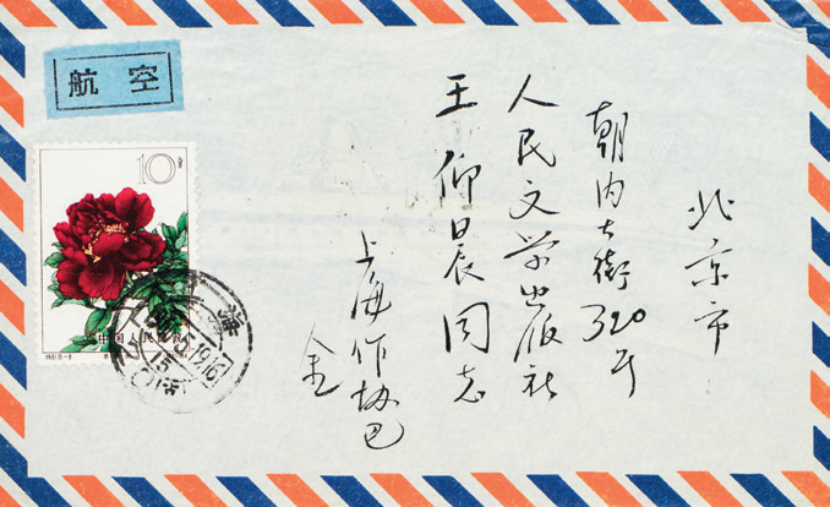 航空
10分
中国人民邮政
北京市
朝内大街320号
人民文学出版社
王仰晨同志
上海作协巴
金